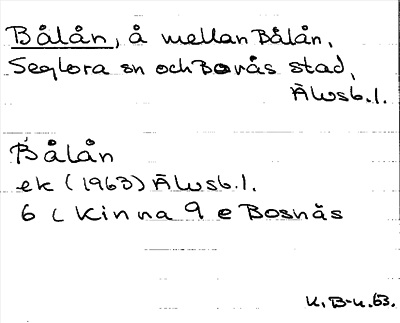 Bålån, å mellan Bålån,
Seglora sn och Borås stad,
Älvsb.l.
Bålån
ek (1963) Älvsb.l.
6 C Kinna 9 e Bosnäs
K.B-k.63.